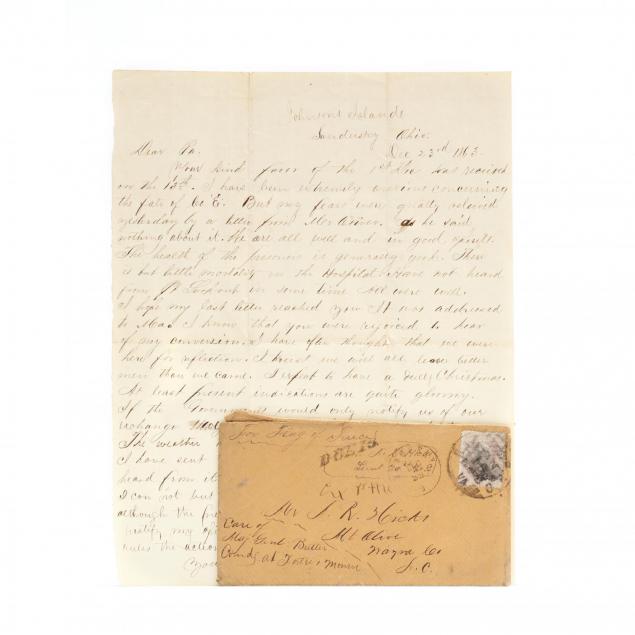 Johnson's Islands
Sandusky Ohio.
Dec 23rd 1863.
Dear Pa.
Your kind favor of the 1st Dec was received
on the 15th. I have been extremely anxious concerning
the fate of Co E. But my fears were greatly relieved
yesterday by a letter from as he said
nothing about it. We are all well and in good
The health of the prisoners is generally good. There
is but little mortality in the Hospital. Have not heard
from Pt Lookout in some time all were well.
I hope my last letter reached you It was addressed
to Ma. I know that you were rejoiced to hear
of my conversion. I have often thought that we were
here for reflection. I trust we will all leave better
men than we came. I expect to have a Christmas.
At least present indications are quite gloomy.
If the Government would only notify us of our
exchange
The weather
I have sent
heard from it
I can not but
although the
justify my
rules the action
You
For Flag of Truce
DUE 15
Mr J. R. Hicks
Mt Olive
Wayne Co
N.C.
Care of
Maj Genl Butler
Comdg at Fortress Monroe